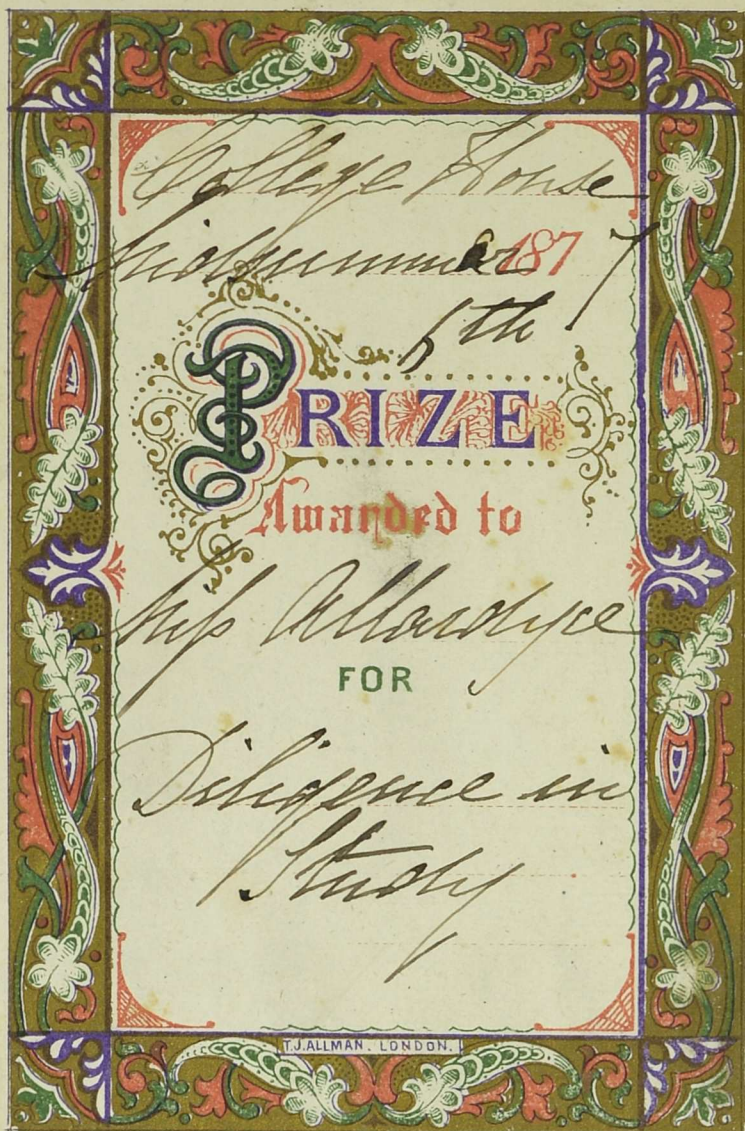 College House
Midsummer 1877
6th
PRIZE
Awarded to
Miss Allardyce
FOR
Diligence in
Study
T.J.ALLMAN. LONDON.